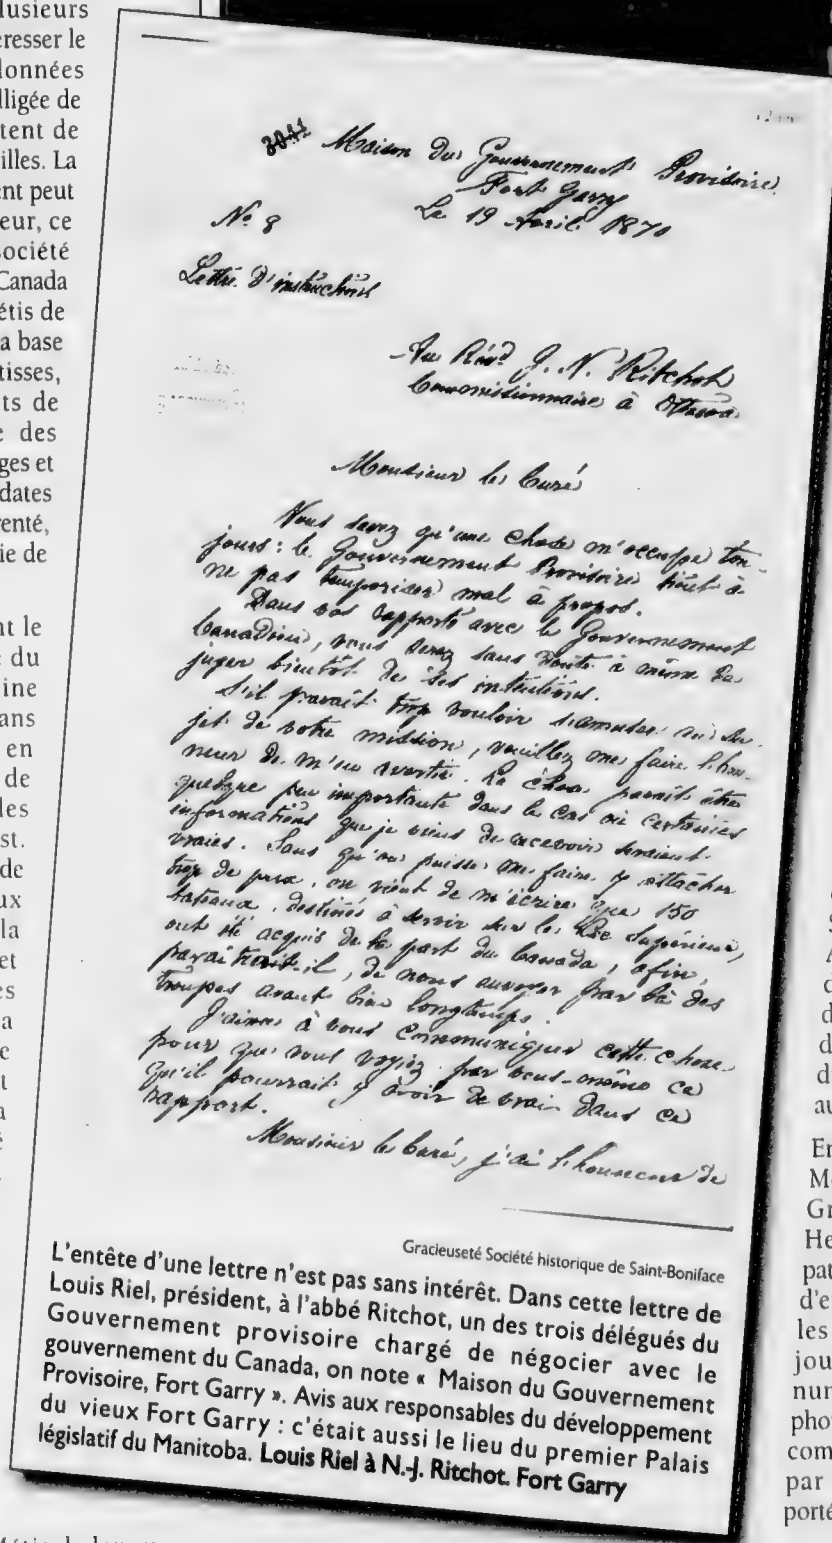 lusieurs
resser le
données
lligée de
tent de
illes. La
ent peut
eur, ce
société
Canada
étis de
a base
tisses,
ts de
e des
ges et
dates
enté,
ie de
nt le
du
ine
ans
en
de
les
st.
de
ux
la
et
es
a
e
t
a
Maison du Gouvernement Provisoire.
Fort Garry
Le 19 Avril 1870
No. 8
Lettre d'instructions
Au Révd J. N. Ritchot
Commissionnaire à Ottawa
Monsieur le Curé
Vous savez qu'une chose m'occupe tou-
jours : le Gouvernement Provisoire tient à
ne pas temporiser mal à propos.
Dans vos rapports avec le Gouvernement
Canadien, vous serez sans doute à même de
juger bientôt de ses intentions.
S'il paraît trop vouloir s'amuser au su-
jet de votre mission, veuillez me faire l'hon-
neur de m'en avertir. La chose paraît être
quelque peu importante dans le cas où certaines
informations que je viens de recevoir seraient
vraies. Sans qu'on puisse me faire y attacher
trop de prix, on vient de m'écrire que 150
bateaux, destinés à servir sur le Lac Supérieur,
ont été acquis de la part du Canada, afin,
paraîtrait-il, de nous envoyer par là des
troupes avant bien longtemps.
J'aime à vous communiquer cette chose
pour que vous voyiez par vous-même ce
qu'il pourrait y avoir de vrai dans ce
rapport.
Monsieur le Curé, j'ai l'honneur de
Gracieuseté Société historique de Saint-Boniface
L'entête d'une lettre n'est pas sans intérêt. Dans cette lettre de
Louis Riel, président, à l'abbé Ritchot, un des trois délégués du
Gouvernement provisoire chargé de négocier avec le
gouvernement du Canada, on note « Maison du Gouvernement
Provisoire, Fort Garry ». Avis aux responsables du développement
du vieux Fort Garry : c'était aussi le lieu du premier Palais
législatif du Manitoba. Louis Riel à N.-J. Ritchot. Fort Garry
au
En
M
Gr
He
pat
d'e
les
jou
nur
pho
com
par
porté